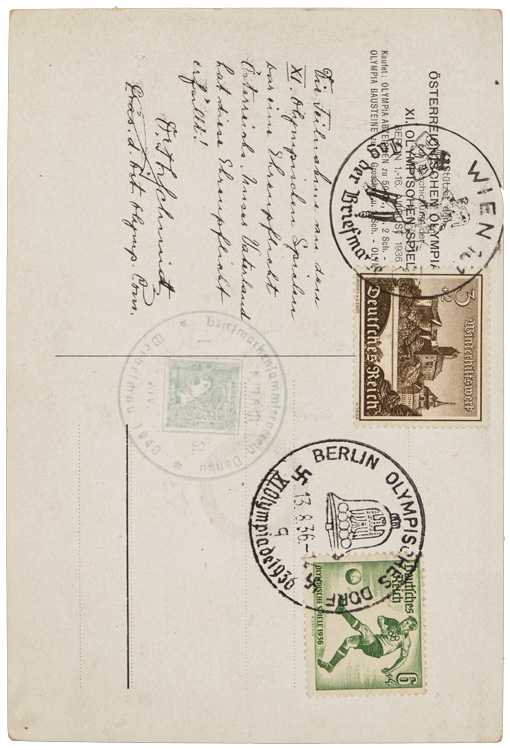 ÖSTERREICHISCHEN OLYMPIA
XI. OLYMPISCHEN SPIEL
BERLIN 1.-16. AUGUST 1936
Kaufet: OLYMPIA ABZEICHEN zu 50 2 Sch. -
OLYMPIA BAUSTEINE Sch. - OLYM
Die Teilnahme an den
XI. Olympischen Spielen
war eine Ehrenpflicht
Österreichs. Unser Vaterland
hat diese Ehrenpflicht
erfüllt!
Dr. Th. Schmidt
Präs. d. öst. Olymp. Com.
WIEN
Tag der Briefmarke
3
+2
Winterhilfswerk
Deutsches Reich
Briefmarkensammlerverein-Donau
Werbeschau 1940
WIEN
BERLIN OLYMPISCHES DORF
13.8.36.-
g
XI Olympiade 1936
Deutsches
Reich
OLYMPISCHE SPIELE 1936
6